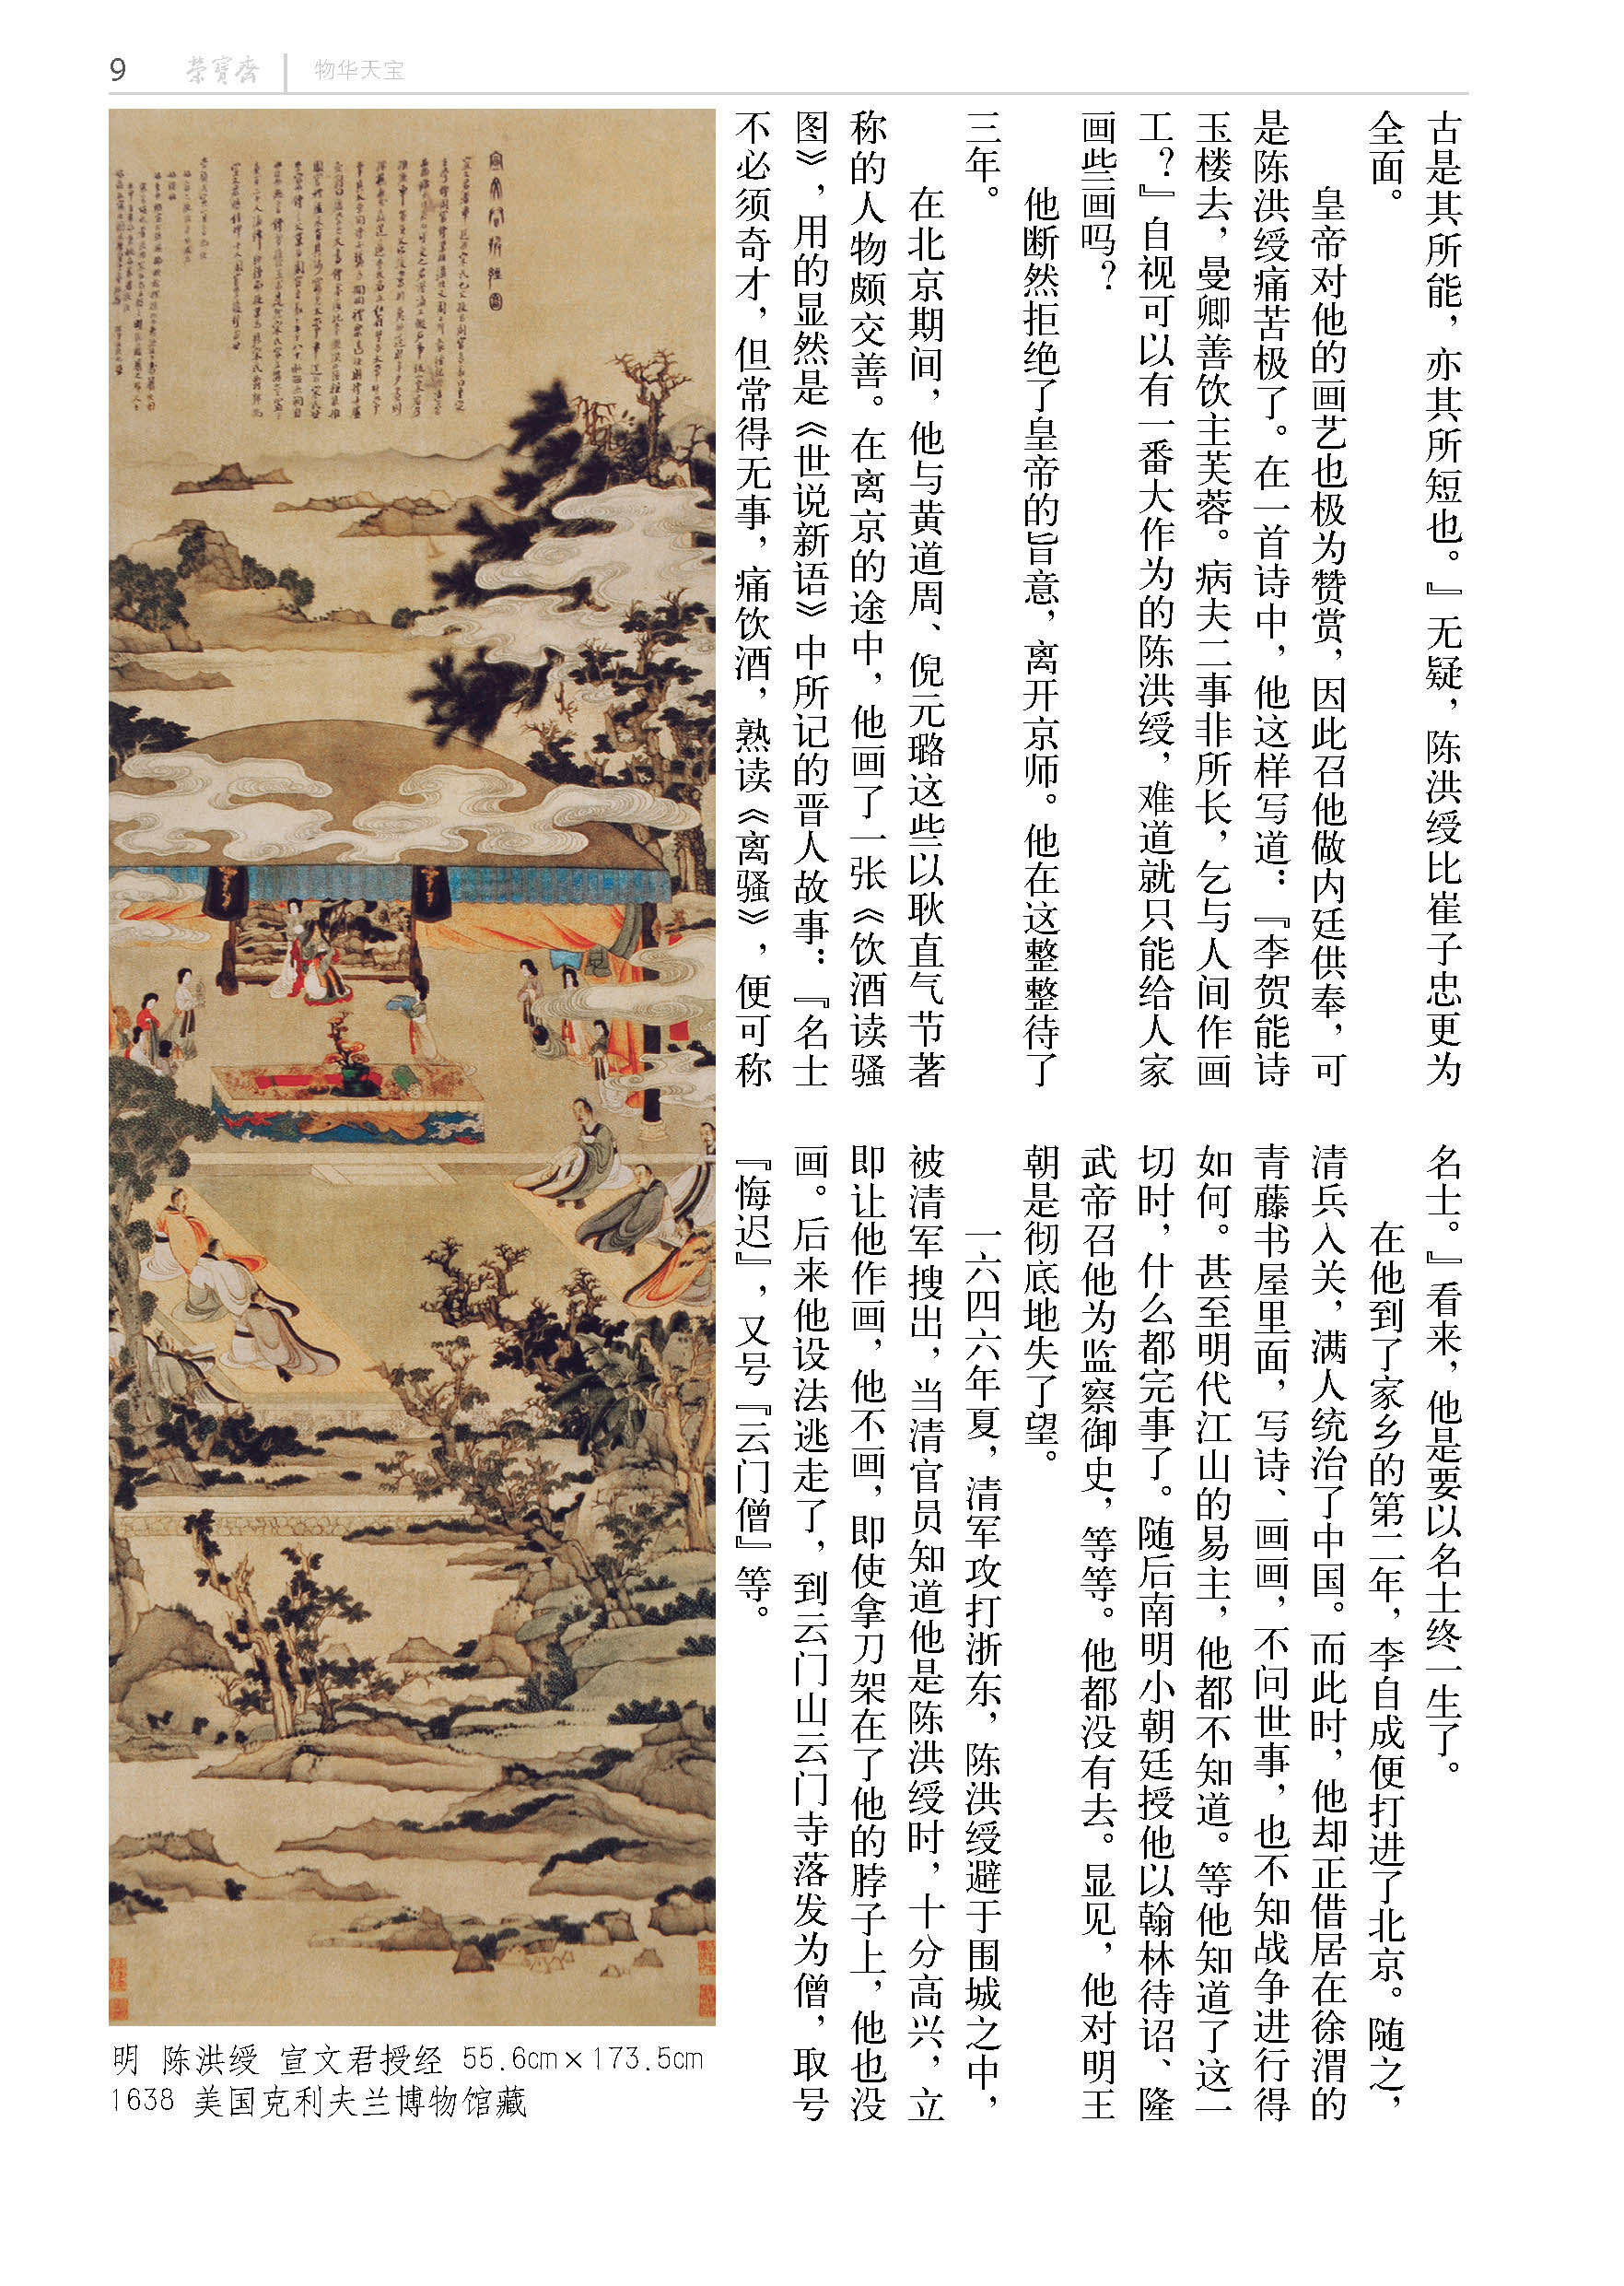 9 荣宝斋 物华天宝
古是其所能，亦其所短也。』无疑，陈洪绶比崔子忠更为
全面。
皇帝对他的画艺也极为赞赏，因此召他做内廷供奉，可
是陈洪绶痛苦极了。在一首诗中，他这样写道：『李贺能诗
玉楼去，曼卿善饮主芙蓉。病夫二事非所长，乞与人间作画
工？』自视可以有一番大作为的陈洪绶，难道就只能给人家
画些画吗？
他断然拒绝了皇帝的旨意，离开京师。他在这整整待了
三年。
在北京期间，他与黄道周、倪元璐这些以耿直气节著
称的人物颇交善。在离京的途中，他画了一张《饮酒读骚
图》，用的显然是《世说新语》中所记的晋人故事：『名士
不必须奇才，但常得无事，痛饮酒，熟读《离骚》，便可称
名士。』看来，他是要以名士终一生了。
在他到了家乡的第二年，李自成便打进了北京。随之，
清兵入关，满人统治了中国。而此时，他却正借居在徐渭的
青藤书屋里面，写诗、画画，不问世事，也不知战争进行得
如何。甚至明代江山的易主，他都不知道。等他知道了这一
切时，什么都完事了。随后南明小朝廷授他以翰林待诏、隆
武帝召他为监察御史，等等。他都没有去。显见，他对明王
朝是彻底地失了望。
一六四六年夏，清军攻打浙东，陈洪绶避于围城之中，
被清军搜出，当清官员知道他是陈洪绶时，十分高兴，立
即让他作画，他不画，即使拿刀架在了他的脖子上，他也没
画。后来他设法逃走了，到云门山云门寺落发为僧，取号
『悔迟』，又号『云门僧』等。
明 陈洪绶 宣文君授经 55.6cm×173.5cm
1638 美国克利夫兰博物馆藏